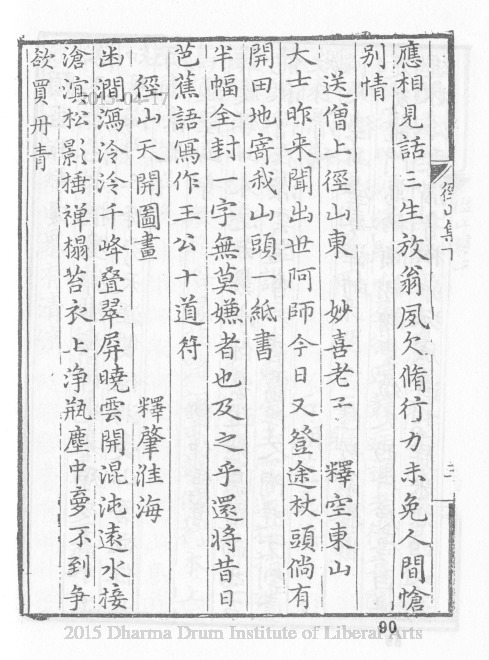 應相見話三生放翁夙欠脩行力未免人間愴
別情
送僧上徑山東 妙喜老子 釋空東山
大士昨來聞出世阿師今日又登途杖頭倘有
開田地寄我山頭一紙書
半幅全封一字無莫嫌者也及之乎還將昔日
芭蕉語寫作王公十道符
徑山天開圖畫 釋肇淮海
幽澗瀉泠泠千峰叠翠屏曉雲開混沌遠水接
滄溟松影捶禪榻苔衣上淨瓶塵中夢不到爭
欲買丹青
徑山集下
2015-04-17
90
2015 Dharma Drum Institute of Liberal Arts